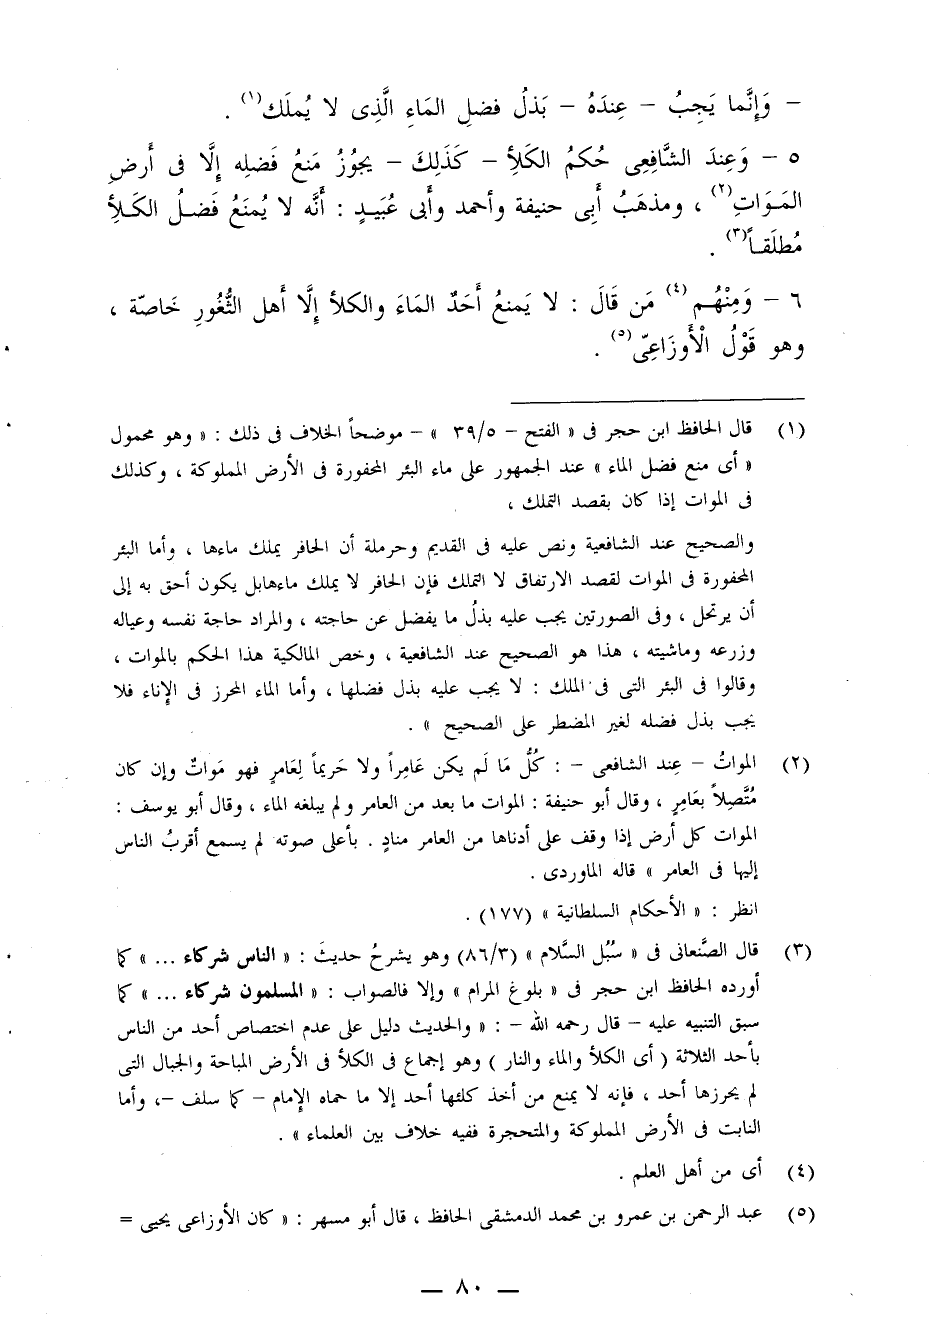 – وَإِنَّما يَجِبُ – عِندَهُ – بَذلُ فضلِ المَاءِ الَّذِى لا يُملَك(١) .
٥ – وَعِندَ الشَّافِعِى حُكمُ الكَلأِ – كَذَلِكَ – يجوُزُ مَنعُ فَضلِه إلَّا فى أَرضِ
المَوَاتِ(٢) ، ومذهَبُ أَبِى حنيفة وأحمد وأَبى عُبَيدٍ : أنَّه لا يُمنَعُ فَضلُ الكَلأِ
مُطلَقاً(٣) .
٦ – وَمِنْهُم(٤) مَن قَالَ : لا يَمنعُ أَحَدٌ المَاءَ والكلأ إلَّا أَهل الثُّغُورِ خَاصّة ،
وهو قَوْلُ الْأَوزَاعِىّ(٥) .
(١) قال الحافظ ابن حجر فى « الفتح – ٣٩/٥ » – موضحاً الخلاف فى ذلك : « وهو محمول
« أى منع فضل الماء » عند الجمهور على ماء البئر المحفورة فى الأرض المملوكة ، وكذلك
فى الموات إذا كان بقصد التملك ،
والصحيح عند الشافعية ونص عليه فى القديم وحرملة أن الحافر يملك ماءها ، وأما البئر
المحفورة فى الموات لقصد الارتفاق لا التملك فإن الحافر لا يملك ماءهابل يكون أحق به إلى
أن يرتحل ، وفى الصورتين يجب عليه بذلُ ما يفضل عن حاجته ، والمراد حاجة نفسه وعياله
وزرعه وماشيته ، هذا هو الصحيح عند الشافعية ، وخص المالكية هذا الحكم بالموات ،
وقالوا فى البئر التى فى الملك : لا يجب عليه بذل فضلها ، وأما الماء المحرز فى الإناء فلا
يجب بذل فضله لغير المضطر على الصحيح » .
(٢) المواتُ – عِند الشافعى – : كُلُّ مَا لَم يكن عَامِراً ولا حَريماً لِعَامرٍ فهو مَواتٌ وإن كان
مُتَّصِلاً بعَامرٍ ، وقال أبو حنيفة : الموات ما بعد من العامر ولم يبلغه الماء ، وقال أبو يوسف :
الموات كل أرض إذا وقف على أدناها من العامر منادٍ . بأعلى صوته لم يسمع أقربُ الناس
إليها فى العامر » قاله الماوردى .
انظر : « الأحكام السلطانية » (١٧٧) .
(٣) قال الصَّنعانى فى « سُبُل السَّلام » (٨٦/٣) وهو يشرحُ حديثَ : « الناس شركاء ... » كما
أورده الحافظ ابن حجر فى « بلوغ المرام » وإلا فالصواب : « المسلمون شركاء ... » كما
سبق التنبيه عليه – قال رحمه الله – : « والحديث دليل على عدم اختصاص أحد من الناس
بأحد الثلاثة ( أى الكلأ والماء والنار ) وهو إجماع فى الكلأ فى الأرض المباحة والجبال التى
لم يحرزها أحد ، فإنه لا يمنع من أخذ كلئها أحد إلا ما حماه الإمام – كما سلف –، وأما
النابت فى الأرض المملوكة والمتحجرة ففيه خلاف بين العلماء » .
(٤) أى من أهل العلم .
(٥) عبد الرحمن بن عمرو بن محمد الدمشقى الحافظ ، قال أبو مسهر : « كان الأوزاعى يحيى =
— ٨٠ —